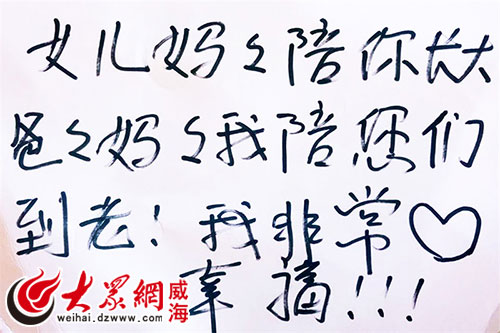 女儿妈々陪你长大
爸々妈々我陪您们
到老！我非常♡
幸福!!!
大眾網 威海
weihai.dzwww.com